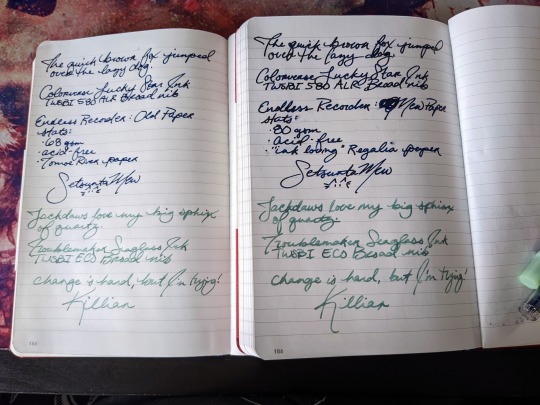 The quick brown fox jumped
over the lazy dog.
Colorverse Lucky Star Ink
TWSBI 580 ALR Broad nib
Endless Recorder: Old Paper
stats:
·68 gsm
·acid-free
·Tomoe River paper
SetsuntaMew
Jackdaws love my big sphinx
of quartz.
Troublemaker Seaglass Ink
TWSBI ECO Broad nib
change is hard, but I'm trying!
Killian
188
The quick brown fox jumped
over the lazy dog.
Colorverse Lucky Star Ink
TWSBI 580 ALR Broad nib
Endless Recorder: New Paper
stats:
·80 gsm
·acid-free
·"ink loving" Regalia paper
SetsuntaMew
Jackdaws love my big sphinx
of quartz.
Troublemaker Seaglass Ink
TWSBI ECO Broad nib
change is hard, but I'm trying!
Killian
188